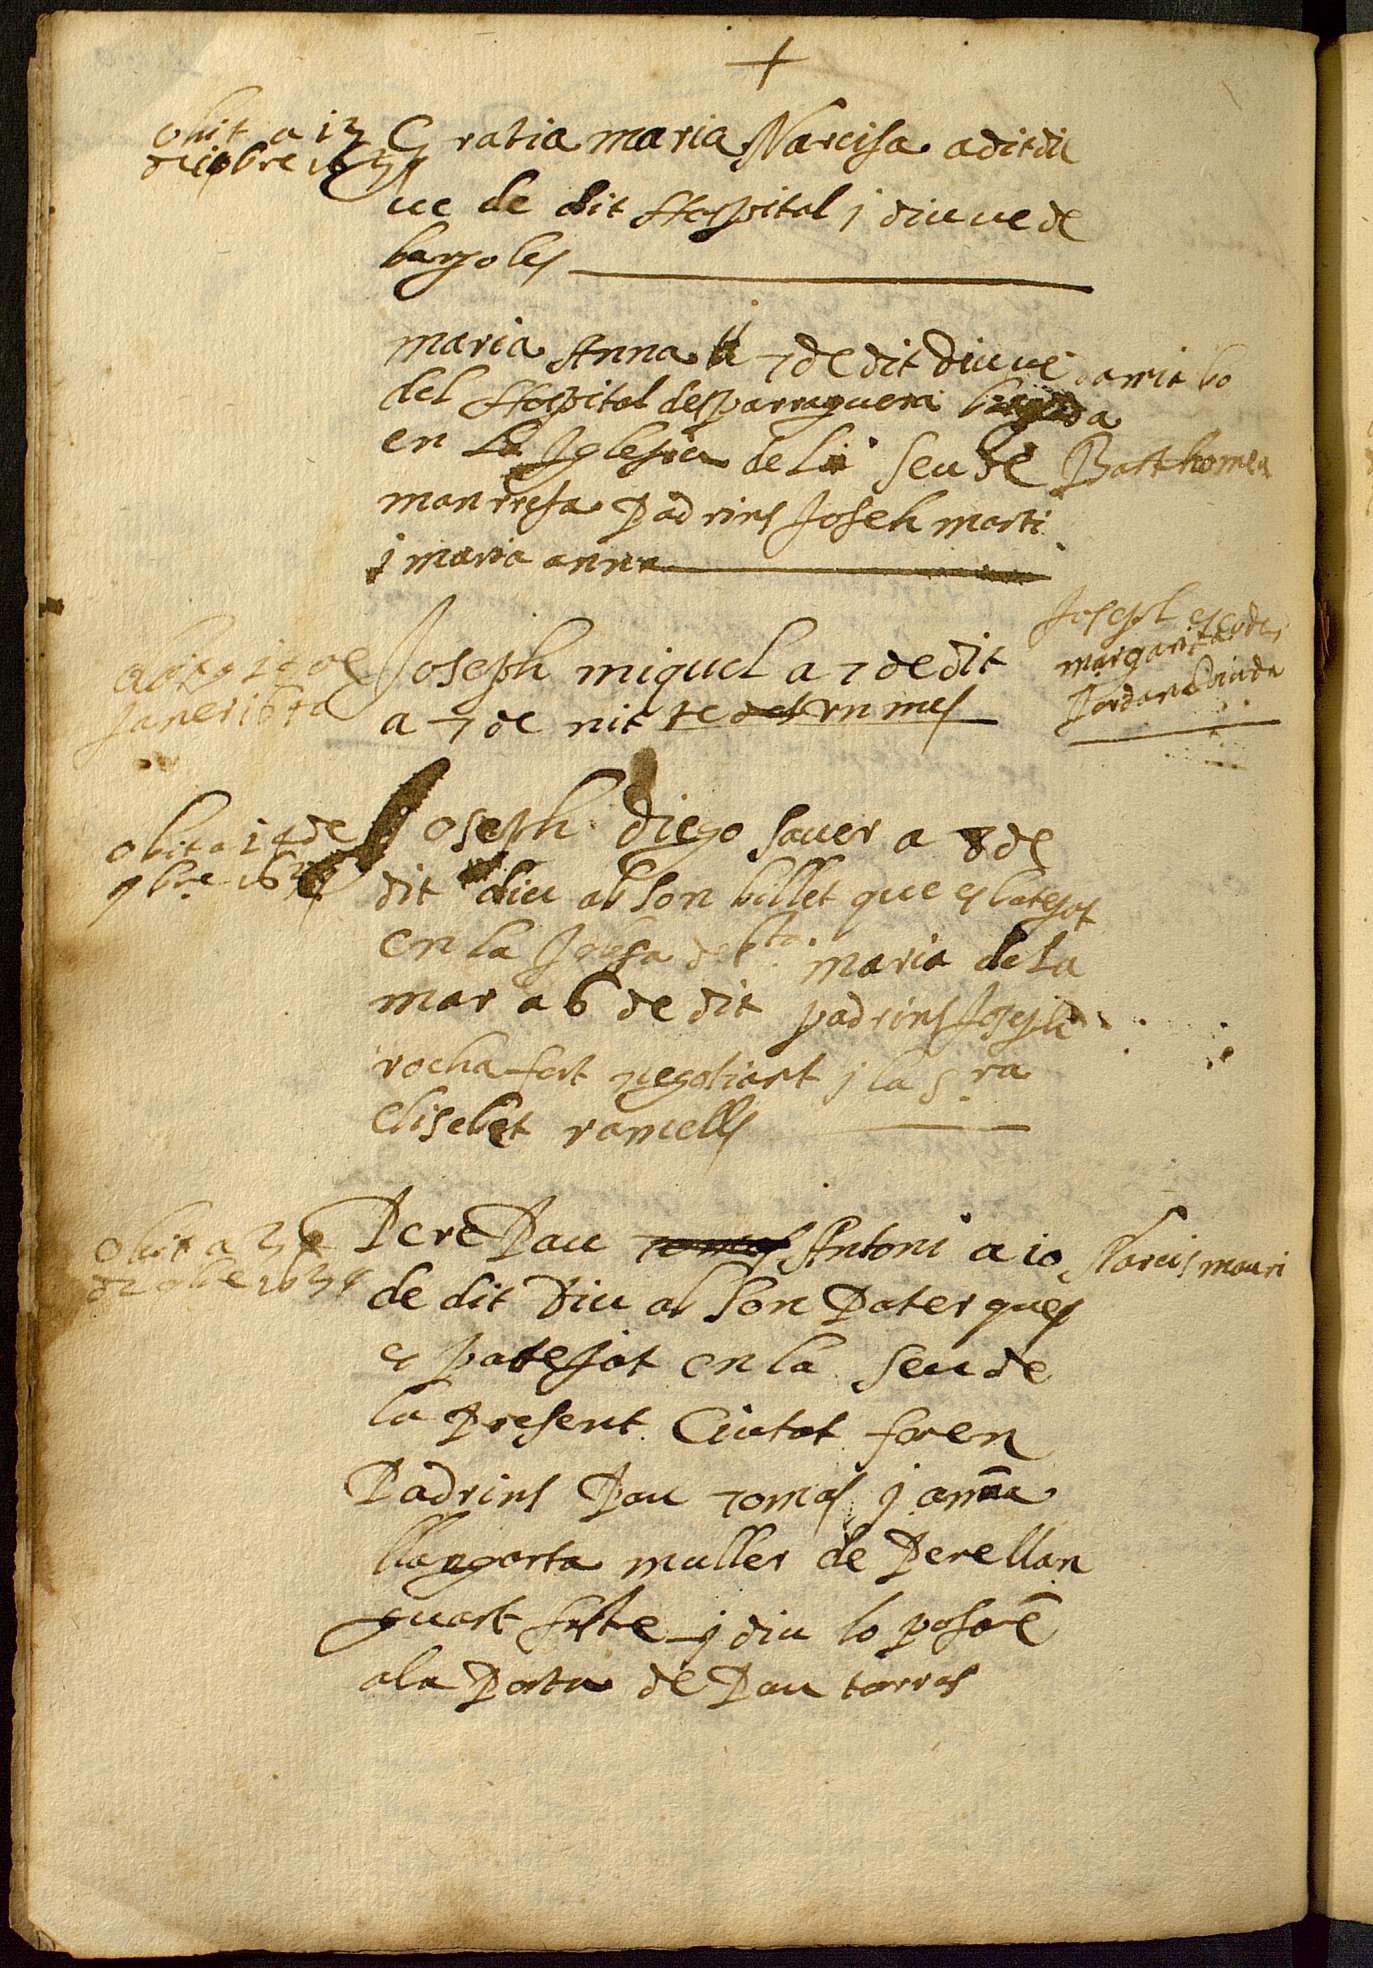 +
obit a 13
de 10bre 1639
Gratia maria Narcisa a dit diu
ve de dit Hospital j diu ve de
banyoles
maria Anna a 7 de dit diu ve
del Hospital desparraguera
en la Iglesia de la Seu de
manrresa Padrins Joseh marti
j maria anna
Batthomeu
obit a 17 de
Janer 1640
Joseph miquel a 7 de dit
a 7 de nit te un mes
Joseph
margarita
Jordana viuda
obit a 14 de
9bre 1639
Joseph diego saver a 8 de
dit diu ab son billet que es batejat
en la Iglesa de Sta. maria de la
mar a 6 de dit padrins Joseph
rochafort negotiant j la Sra
elisebet ramells
obit a
de 9bre 1639
Pere Pau tomas Antoni a 10
de dit Diu ab son Pater ques
es batejat en la seu de
la present Ciutat foren
Padrins Pau tomas j anna
llangorta muller de Pere llan
guart fuste j diu lo posarē
a la Porta de Pau torras
Narcis mauri